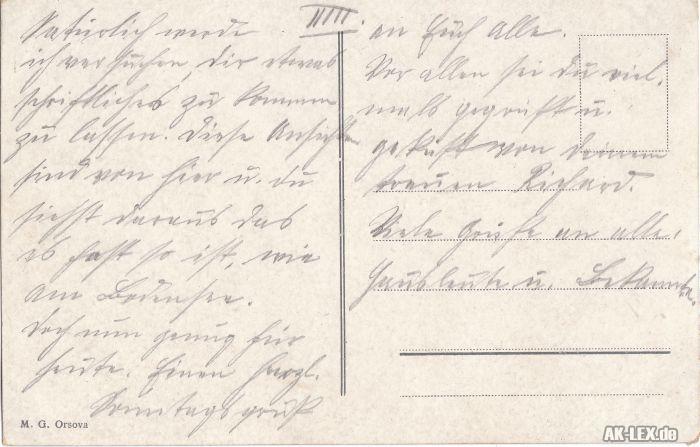 IIIII.
Natürlich werde
ich versuchen, dir etwas
schriftliches zu kommen
zu lassen. Diese Ansichten
sind von hier u. du
siehst daraus das
es fast so ist, wie
am Bodensee.
Doch nun genug für
heute. Einen herzl.
Sonntagsgruß
an Euch Alle.
Vor allen sei du viel,
mals gegrüßt u.
geküßt von deinem
treuen Richard.
Viele Grüße an alle,
Hausleute u. Bekannte.
M. G. Orsova
AK-LEX.de